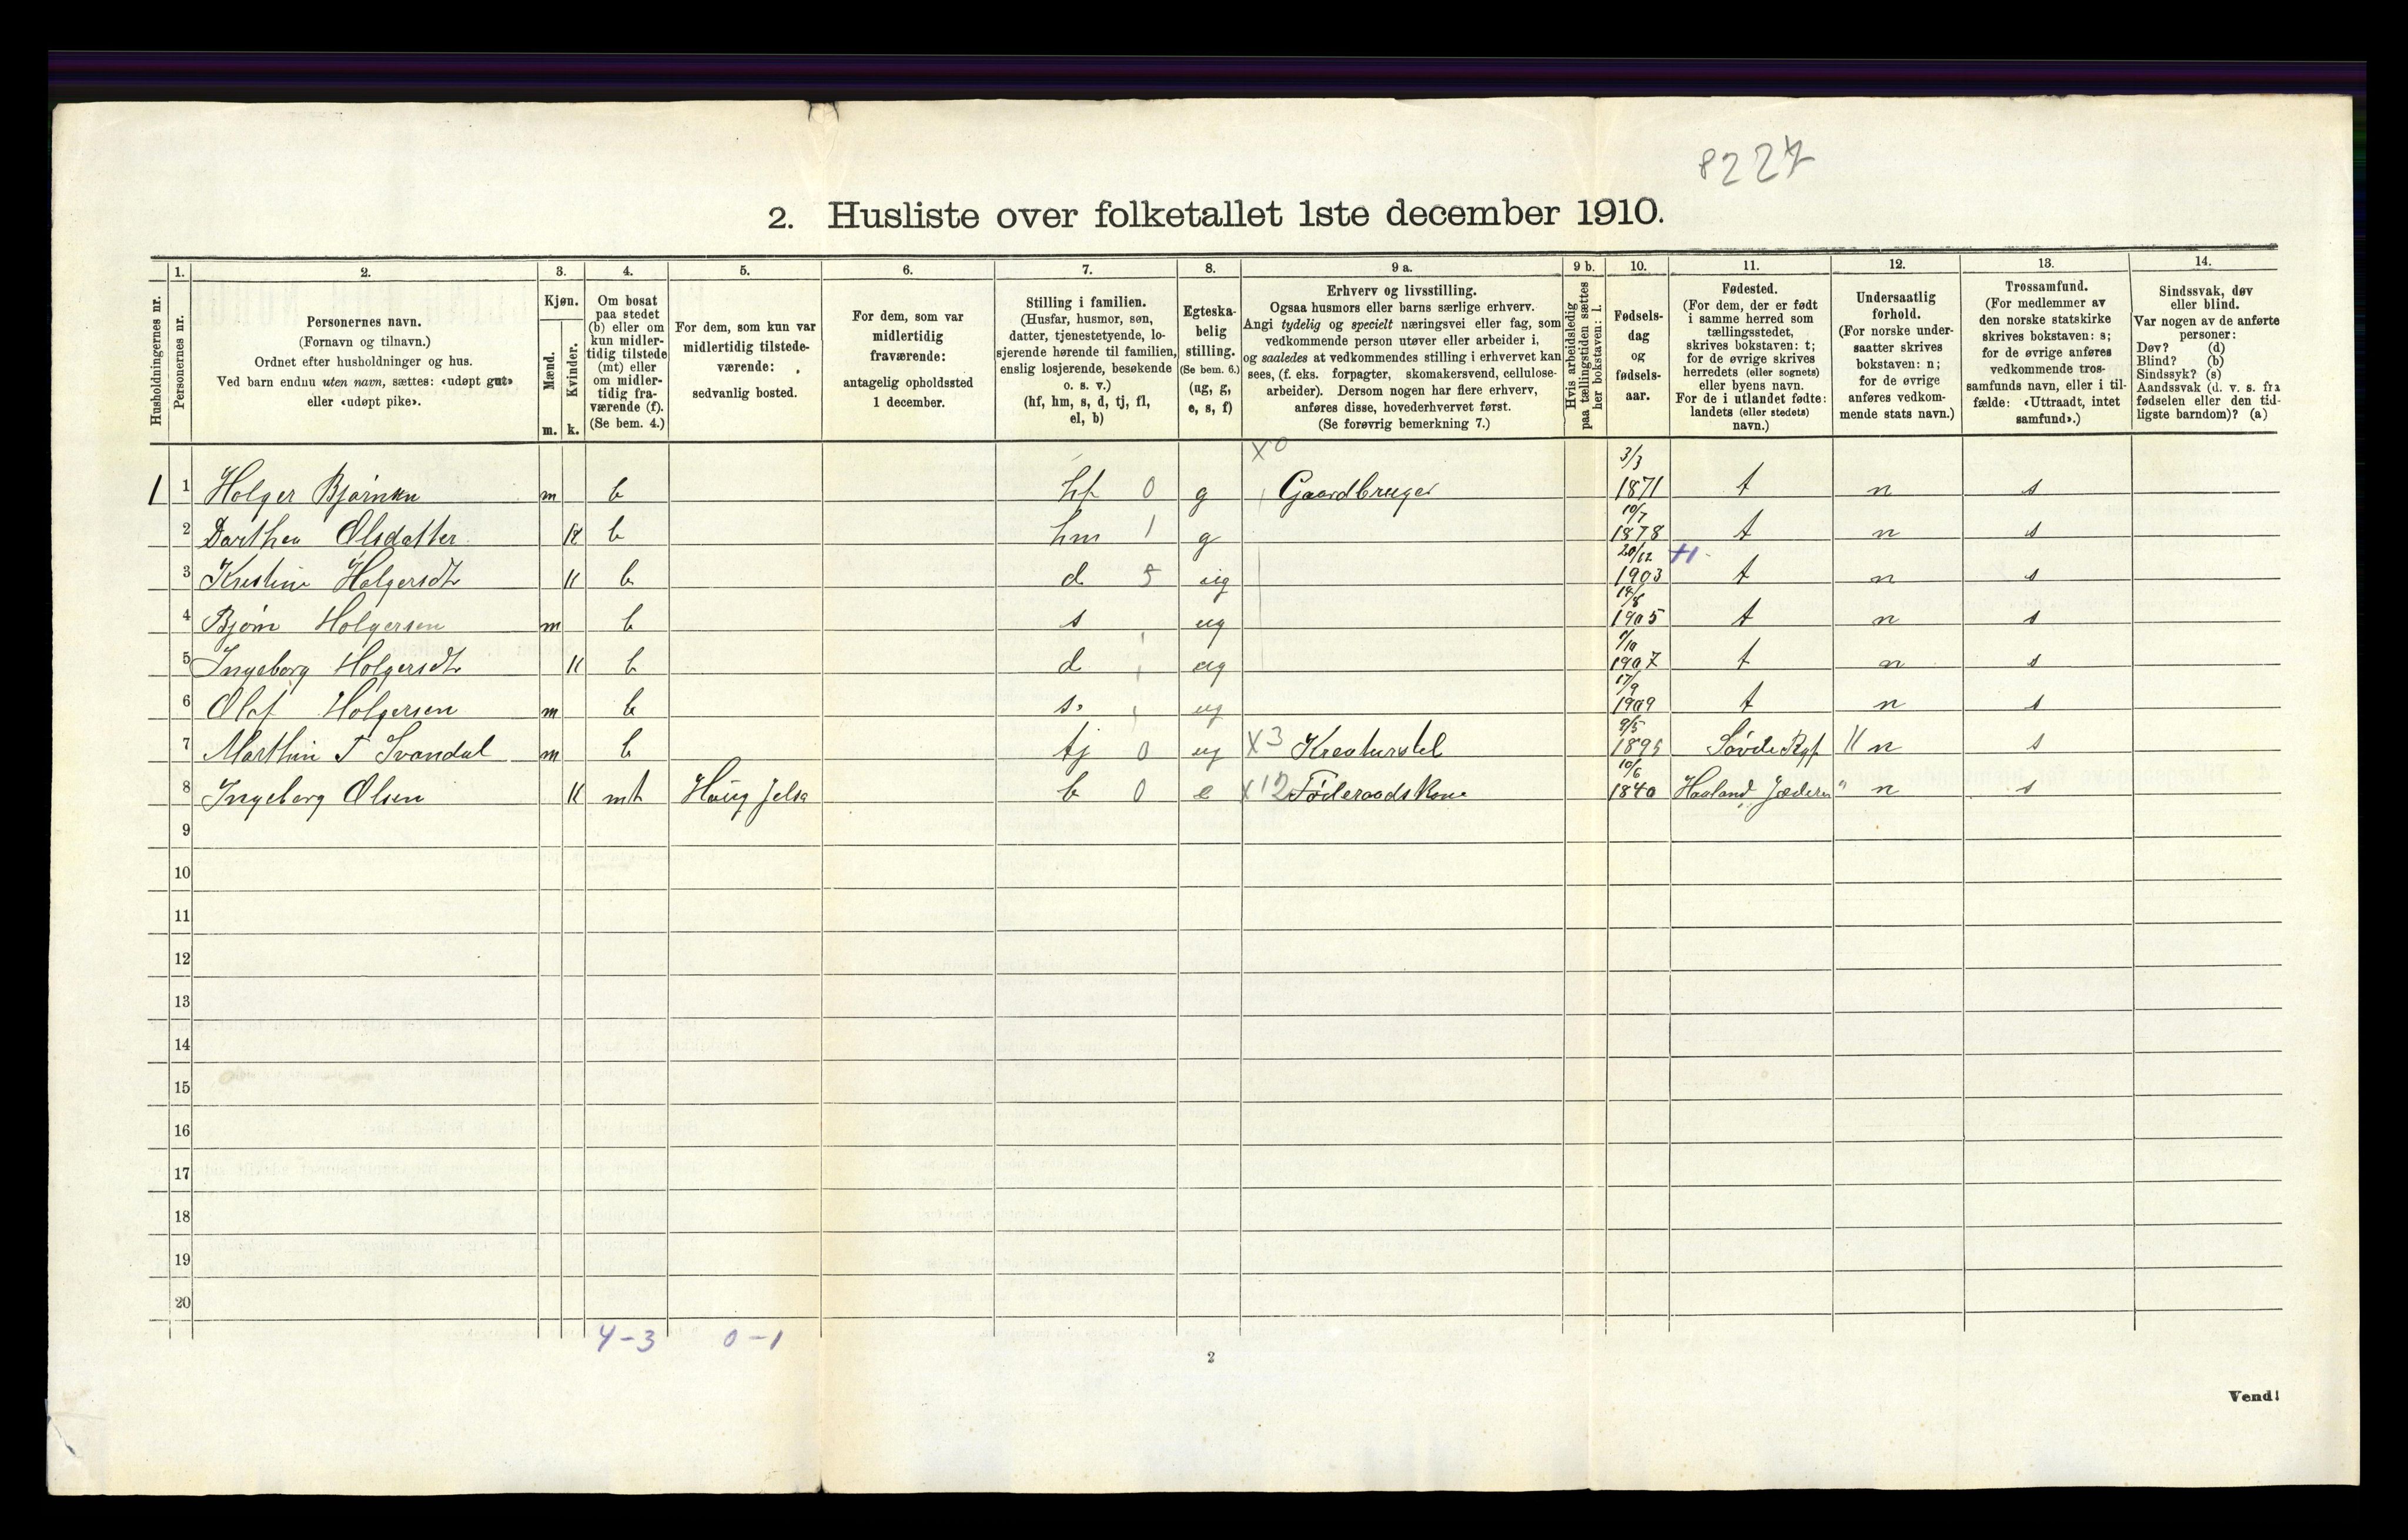 8227
2. Husliste over folketallet 1ste december 1910.
Husholdningernes nr.
1. Personernes nr.
2. Personernes navn.
(Fornavn og tilnavn.)
Ordnet efter husholdninger og hus.
Ved barn endnu uten navn, sættes: «udøpt gut»
eller «udøpt pike».
3. Kjøn.
Mænd. m.
Kvinder. k.
4. Om bosat
paa stedet
(b) eller om
kun midler-
tidig tilstede
(mt) eller
om midler-
tidig fra-
værende (f).
(Se bem. 4.)
5. For dem, som kun var
midlertidig tilstede-
værende:
sedvanlig bosted.
6. For dem, som var
midlertidig
fraværende:
antagelig opholdssted
1 december.
7. Stilling i familien.
(Husfar, husmor, søn,
datter, tjenestetyende, lo-
sjerende hørende til familien,
enslig losjerende, besøkende
o. s. v.)
(hf, hm, s, d, tj, fl,
el, b)
8. Egteska-
belig
stilling.
(Se bem. 6.)
(ug, g,
e, s, f)
9 a. Erhverv og livsstilling.
Ogsaa husmors eller barns særlige erhverv.
Angi tydelig og specielt næringsvei eller fag, som
vedkommende person utøver eller arbeider i,
og saaledes at vedkommendes stilling i erhvervet kan
sees, (f. eks. forpagter, skomakersvend, cellulose-
arbeider). Dersom nogen har flere erhverv,
anføres disse, hovederhvervet først.
(Se forøvrig bemerkning 7.)
9 b. Hvis arbeidsledig
paa tællingstiden sættes
her bokstaven: l.
10. Fødsels-
dag
og
fødsels-
aar.
11. Fødested.
(For dem, der er født
i samme herred som
tællingsstedet,
skrives bokstaven: t;
for de øvrige skrives
herredets (eller sognets)
eller byens navn.
For de i utlandet fødte:
landets (eller stedets)
navn.)
12. Undersaatlig
forhold.
(For norske under-
saatter skrives
bokstaven: n;
for de øvrige
anføres vedkom-
mende stats navn.)
13. Trossamfund.
(For medlemmer av
den norske statskirke
skrives bokstaven: s;
for de øvrige anføres
vedkommende tros-
samfunds navn, eller i til-
fælde: «Uttraadt, intet
samfund».)
14. Sindssvak, døv
eller blind.
Var nogen av de anførte
personer:
Døv? (d)
Blind? (b)
Sindssyk? (s)
Aandssvak (d. v. s. fra
fødselen eller den tid-
ligste barndom)? (a)
1 1 Holger Bjørnsen m b hf 0 g X0 Gaardbruger 3/3 1871 t n s
2 Darthea Olsdatter k b hm 1 g 10/7 1878 t n s
3 Kristine Holgersdtr k b d 5 ug 20/12 1903 t n s
4 Bjørn Holgersen m b s ug 14/8 1905 t n s
5 Ingeborg Holgersdtr k b d ug 1907 t n s
6 Olaf Holgersen m b s. ug 17/9 1909 t n s
7 Marthin T Svandal m b tj 0 ug X3 Kreaturstel 9/5 1895 Søvde Ryf n s
8 Ingeborg Olsen k mt Haug Jelsa b 0 e X12 Føderaadskone 10/6 1840 Haaland Jæderen n s
9
10
11
12
13
14
15
16
17
18
19
20
4-3 0-1
2
Vend!